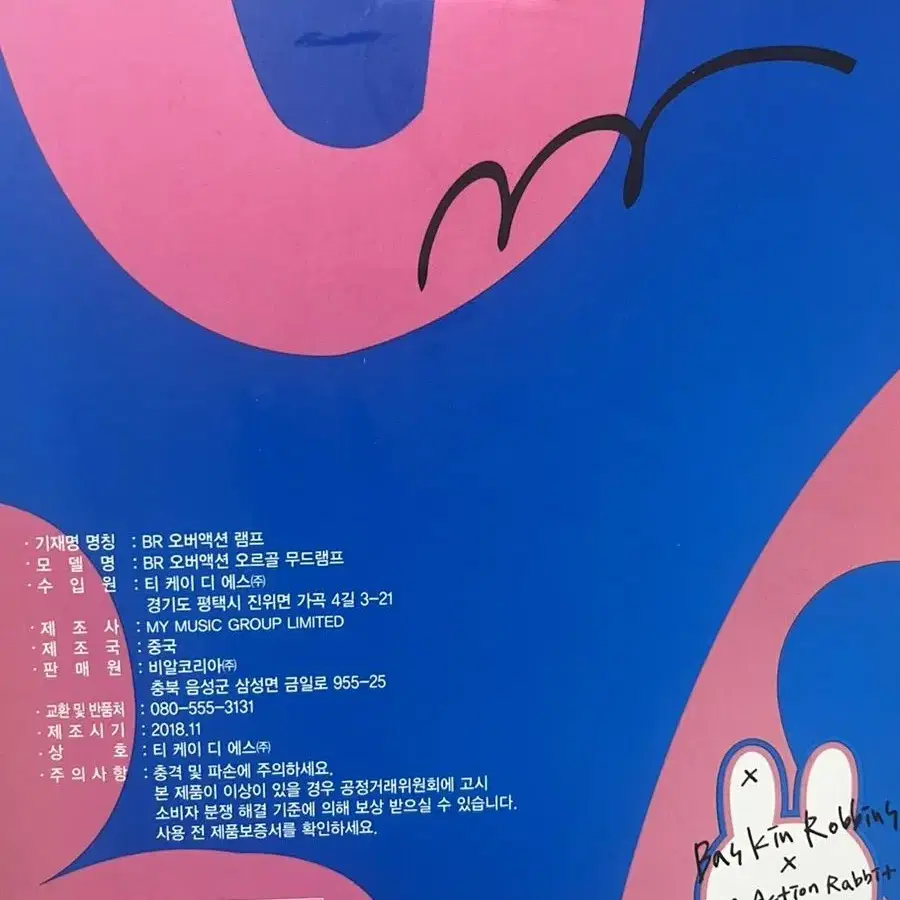 · 기재명 명칭 : BR 오버액션 램프
· 모 델 명 : BR 오버액션 오르골 무드램프
· 수 입 원 : 티 케이 디 에스㈜
경기도 평택시 진위면 가곡 4길 3-21
· 제 조 사 : MY MUSIC GROUP LIMITED
· 제 조 국 : 중국
· 판 매 원 : 비알코리아㈜
충북 음성군 삼성면 금일로 955-25
· 교환 및 반품처 : 080-555-3131
· 제 조 시 기 : 2018.11
· 상 호 : 티 케이 디 에스㈜
· 주 의 사 항 : 충격 및 파손에 주의하세요.
본 제품이 이상이 있을 경우 공정거래위원회에 고시
소비자 분쟁 해결 기준에 의해 보상 받으실 수 있습니다.
사용 전 제품보증서를 확인하세요.
Baskin Robbins
x
Action Rabbit